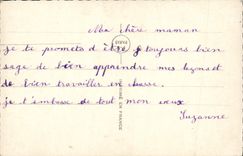 Ma chère maman
je te promets d'être toujours bien
sage de bien apprendre mes leçons et
de bien travailler en classe.
je t'embrasse de tout mon cœur
Suzanne
PARIS
MADE IN FRANCE